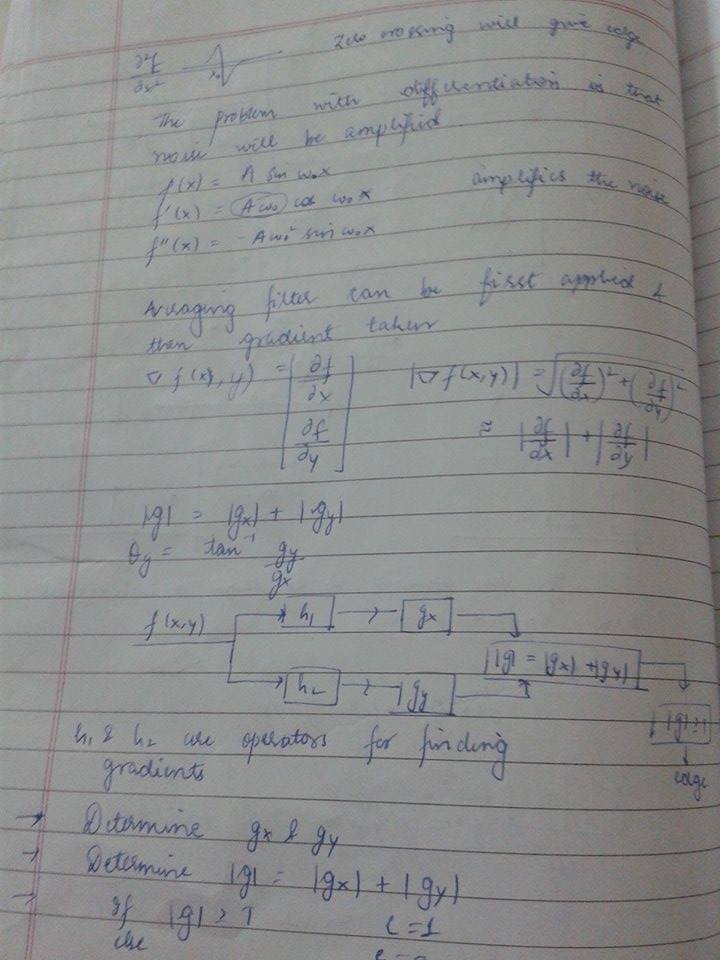 ∂²f/∂x² x₀ Zero crossing will give edge
The problem with differentiation is that
noise will be amplified
f(x) = A sin ω₀x
f'(x) = Aω₀ cos ω₀x amplifies the noise
f''(x) = -Aω₀² sin ω₀x
Averaging filter can be first applied &
than gradient taken
∇ f(x, y) = [∂f/∂x ∂f/∂y] |∇ f(x,y)| = √((∂f/∂x)² + (∂f/∂y)²)
≈ |∂f/∂x| + |∂f/∂y|
|g| = |gx| + |gy|
θg = tan⁻¹ gy/gx
f(x,y) h₁ gx
|g| = |gx| + |gy|
h₂ gy
|g|>T
edge
h₁ & h₂ are operators for finding
gradients
→ Determine gx & gy
→ Determine |g| = |gx| + |gy|
→ If |g| > T
else